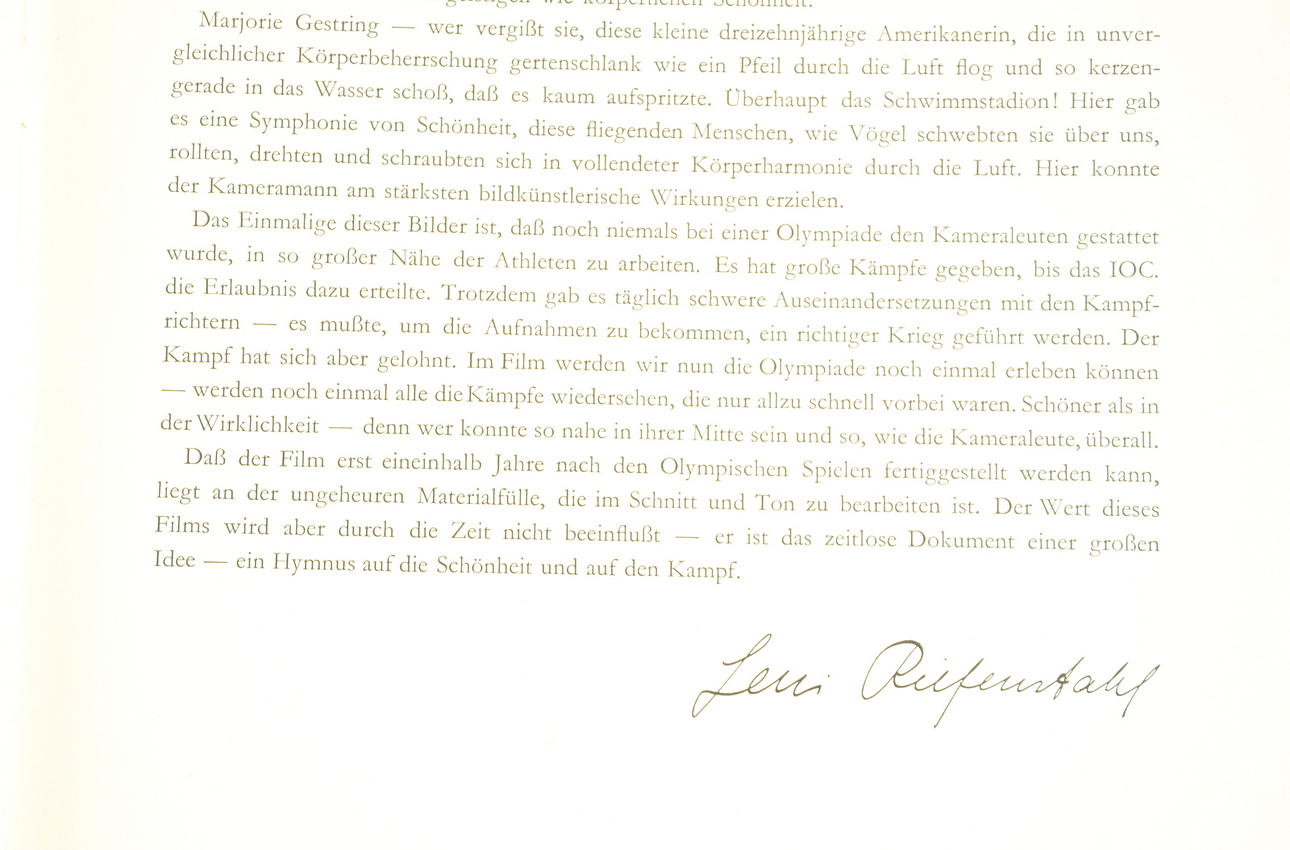 geistigen wie körperlichen Schönheit.
Marjorie Gestring — wer vergißt sie, diese kleine dreizehnjährige Amerikanerin, die in unver-
gleichlicher Körperbeherrschung gertenschlank wie ein Pfeil durch die Luft flog und so kerzen-
gerade in das Wasser schoß, daß es kaum aufspritzte. Überhaupt das Schwimmstadion! Hier gab
es eine Symphonie von Schönheit, diese fliegenden Menschen, wie Vögel schwebten sie über uns,
rollten, drehten und schraubten sich in vollendeter Körperharmonie durch die Luft. Hier konnte
der Kameramann am stärksten bildkünstlerische Wirkungen erzielen.
Das Einmalige dieser Bilder ist, daß noch niemals bei einer Olympiade den Kameraleuten gestattet
wurde, in so großer Nähe der Athleten zu arbeiten. Es hat große Kämpfe gegeben, bis das IOC.
die Erlaubnis dazu erteilte. Trotzdem gab es täglich schwere Auseinandersetzungen mit den Kampf-
richtern — es mußte, um die Aufnahmen zu bekommen, ein richtiger Krieg geführt werden. Der
Kampf hat sich aber gelohnt. Im Film werden wir nun die Olympiade noch einmal erleben können
— werden noch einmal alle die Kämpfe wiedersehen, die nur allzu schnell vorbei waren. Schöner als in
der Wirklichkeit — denn wer konnte so nahe in ihrer Mitte sein und so, wie die Kameraleute, überall.
Daß der Film erst eineinhalb Jahre nach den Olympischen Spielen fertiggestellt werden kann,
liegt an der ungeheuren Materialfülle, die im Schnitt und Ton zu bearbeiten ist. Der Wert dieses
Films wird aber durch die Zeit nicht beeinflußt — er ist das zeitlose Dokument einer großen
Idee — ein Hymnus auf die Schönheit und auf den Kampf.
Leni Riefenstahl